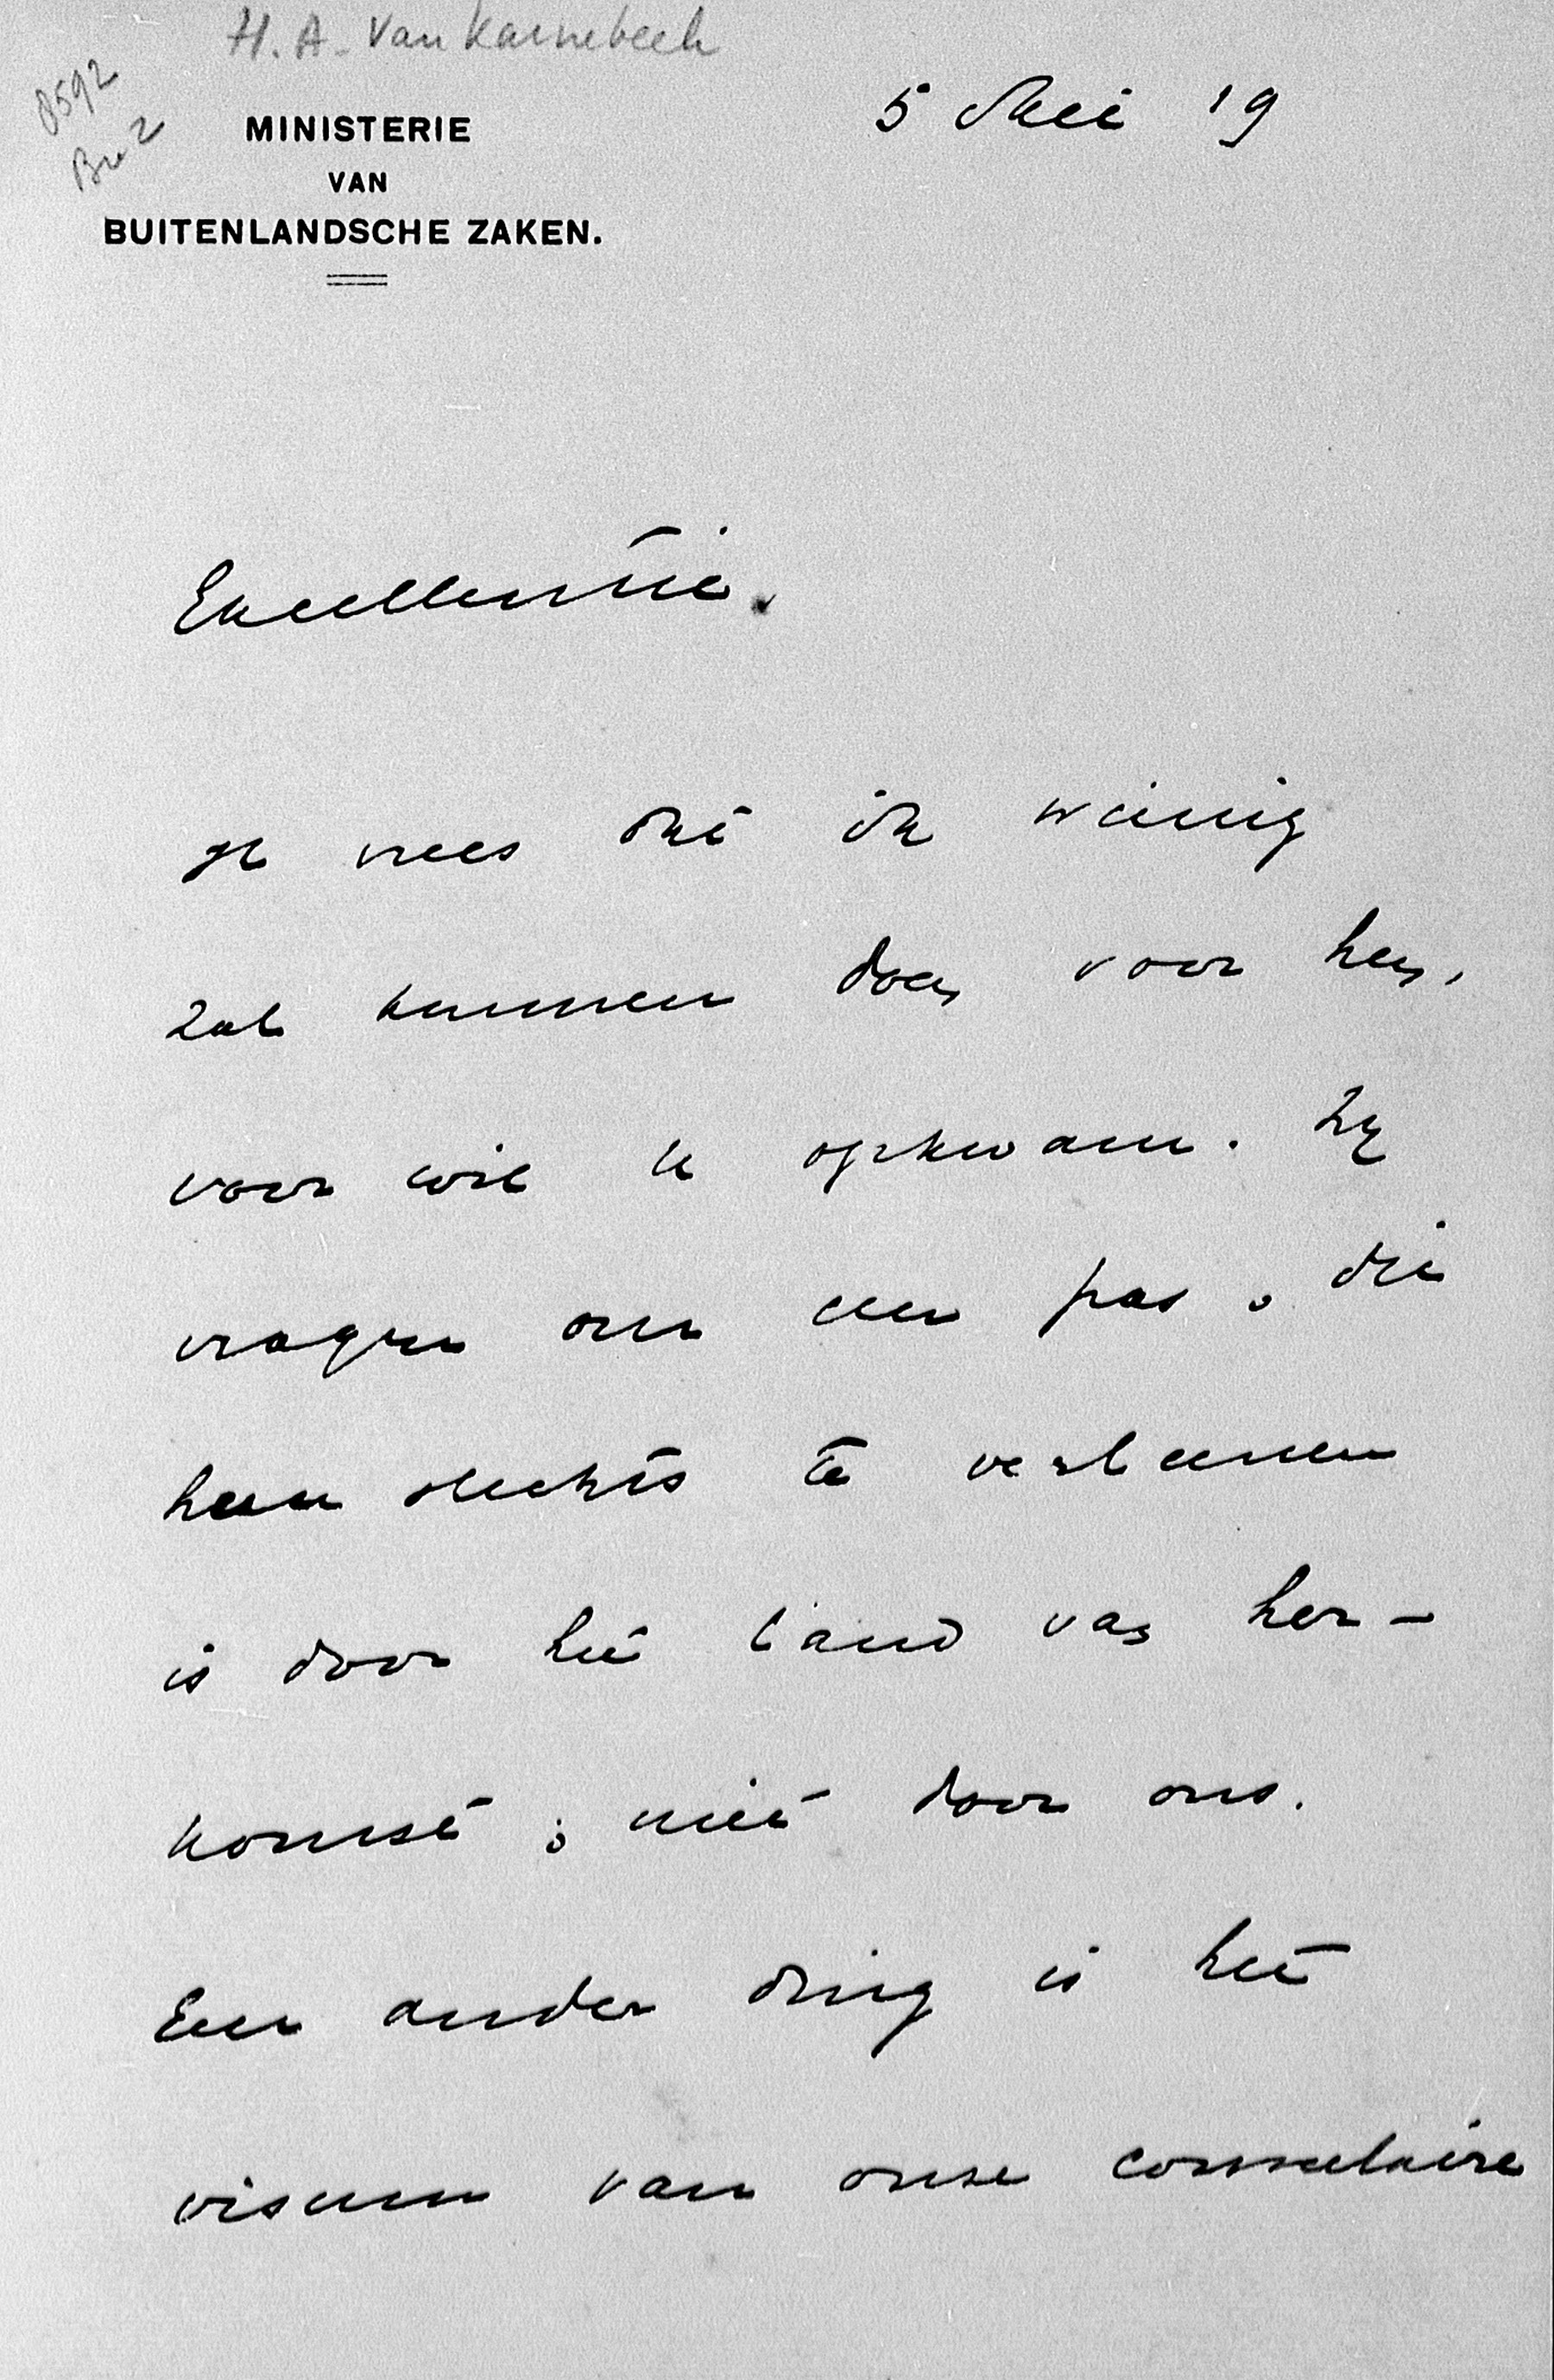 H. A. van Karnebeek
8592
Bu 2
MINISTERIE
VAN
BUITENLANDSCHE ZAKEN.
5 Mei '19
Excellentie.
Ik vrees dat ik weinig
zal kunnen doen voor hen,
voor wie U opkwam. Zij
vragen om een pas; die
hun slechts te verleenen
is door het land van her-
komst; niet door ons.
Een ander ding is het
visum van onze consulaire